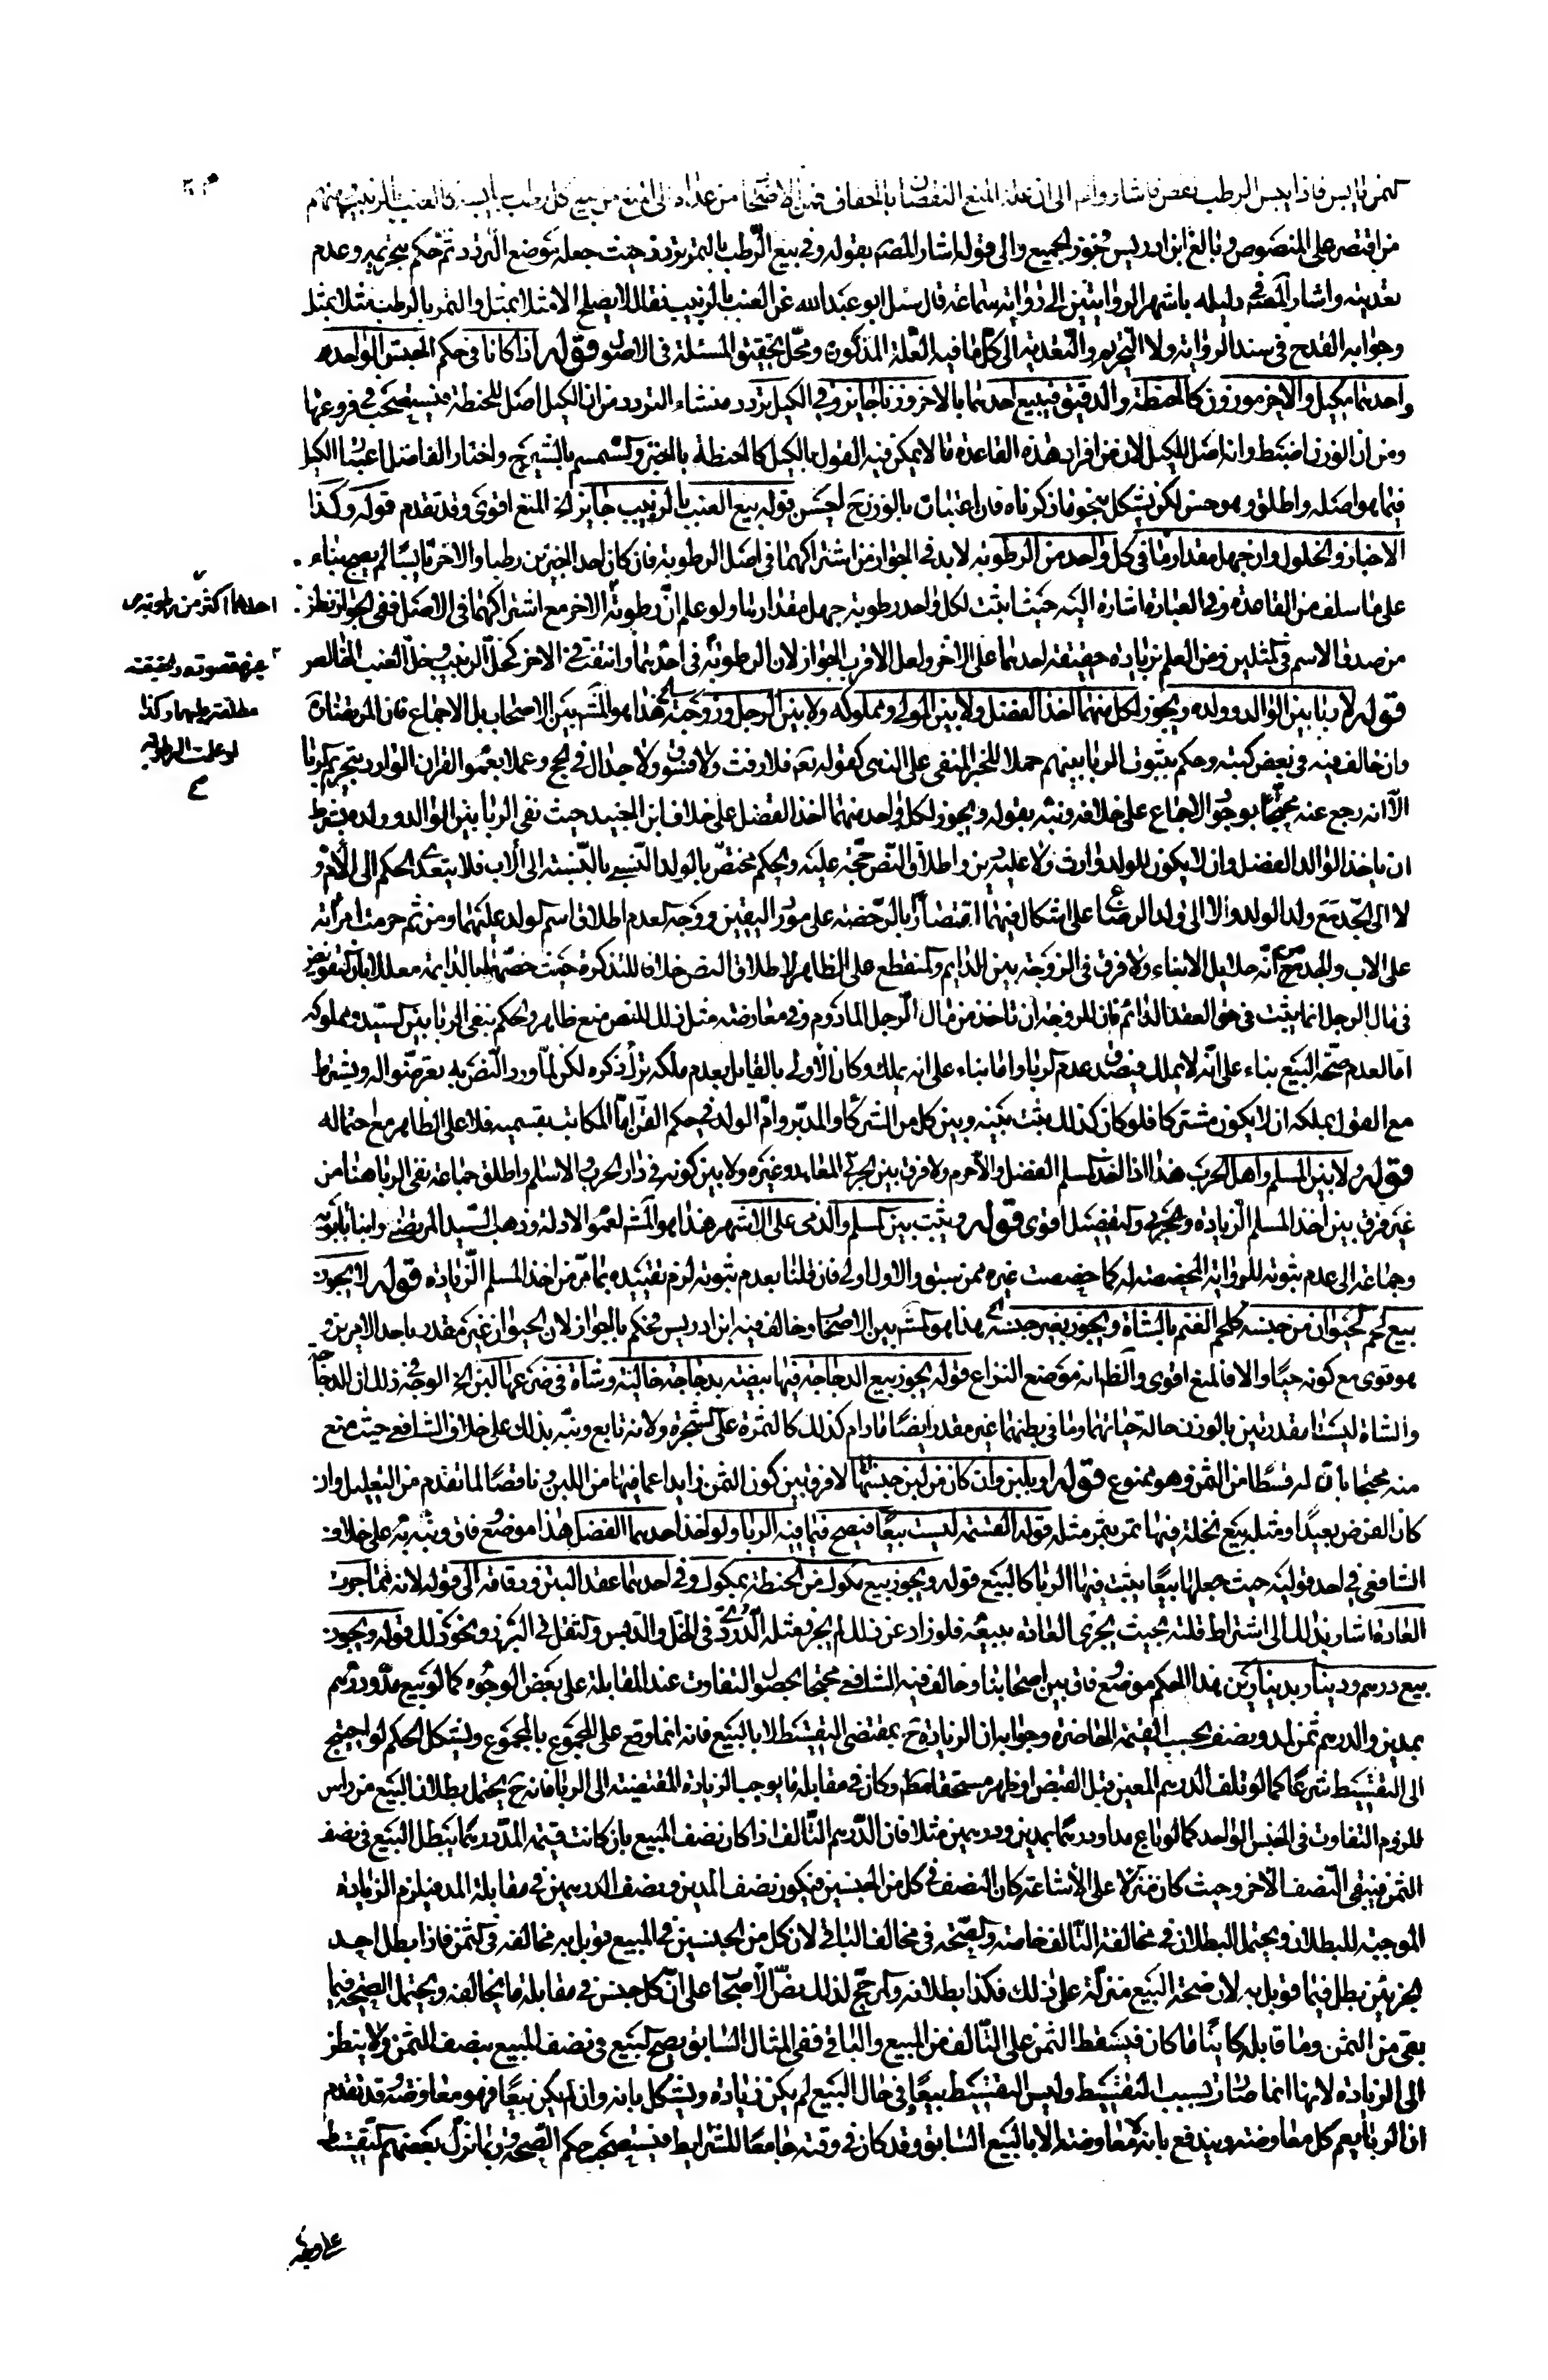 كتمر يابس فاذا يبس الرطب نقص فاشار الى ان علة المنع النقصان بالجفاف فمن الاصحاب من عداه الى المنع من بيع كل رطب بيابسه كالعنب بالزبيب ومنهم
من اقتصر على المنصوص وبالغ ابن ادريس فجوز الجميع والى قوله اشار المصنف بقوله وفي بيع الرطب بالتمر تردد حيث جعله موضع التردد ثم حكم بتحريمه وعدم
تعديته واشار المصنف في دليله باشهر الروايتين الى رواية سماعة قال سئل ابو عبد الله عن العنب بالزبيب فقال لا يصلح الا مثلا بمثل والتمر بالرطب مثلا بمثل
وجوابه القدح في سند الرواية ولا التحريم والتعدية الى كل ما فيه العلة المذكورة ومحل تحقيق المسئلة في الاصول قوله اذا كانا في حكم الجنس الواحد
واحدهما مكيل والاخر موزون كالحنطة والدقيق فبيع احدهما بالاخر وزنا جايز وفي الكيل تردد منشاء التردد من ان الكيل اصل للحنطة فيستصحب في فروعها
ومن ان الوزن اضبط وانه اصل للكيل لان من افراد هذه القاعدة ما لا يمكن فيه القول بالكيل كالحنطة بالخبز والسمسم بالشيرج واختار الفاضل اعتبار الكيل
فيما هو اصله واطلق وهو حسن لكن يشكل بنحو ما ذكرناه فان اعتبار بالوزن ح احسن قوله بيع العنب بالزبيب جايز الخ المنع اقوى وقد تقدم قوله وكذا
الاخباز والخلول وان جهل مقدار ما في كل واحد من الرطوبة لا بد في الجواز من اشتراكهما في اصل الرطوبة فان كان احد الخبزين رطبا والاخر يابسا لم يصح بناء
على ما سلف من القاعدة وفي العبارة اشارة اليه حيث اثبت لكل واحد رطوبة جهل مقدارها ولو علم ان رطوبة الاخر مع اشتراكهما في الاصل ففي الجواز نظر
احدهما اكثر من رطوبة
من صدق الاسم في المثلين ومن العلم بزيادة حقيقة احدهما على الاخر ولعل الاقرب الجواز لان الرطوبة في احدهما وانتفت في الاخر كخل الزبيب وخل العنب الخالص
قوله لا ربا بين الوالد وولده ويجوز لكل منهما اخذ الفضل ولا بين المولى ومملوكه ولا بين الرجل وزوجته الخ هذا هو المشهور بين الاصحاب بل الاجماع فان المرتضى
وان خالف فيه في بعض كتبه وحكم بثبوت الربا بينهم حملا للخبر المنفى على النهى كقوله تعم فلا رفث ولا فسوق ولا جدال في الحج وعملا بعموم القران الوارد بتحريم الربا
الا انه رجع عنه محتجا بوجود الاجماع على خلافه ونبه بقوله ويجوز لكل واحد منهما اخذ الفضل على خلاف ابن الجنيد حيث نفى الربا بين الوالد وولده بشرط
ان ياخذ الوالد الفضل وان لا يكون للولد وارث ولا عليه دين واطلاق النص حجة عليه والحكم مختص بالولد النسبي بالنسبة الى الاب فلا يتعدى الحكم الى الام و
لا الى الجد مع ولد الولد ولا الى ولد الرضاع على اشكال فيهما اقتصارا بالرخصة على مورد اليقين ووجه العدم اطلاق اسم الولد عليهما ومن ثم حرمت امراته
على الاب والجد مع انه حلائل الابناء ولا فرق في الزوجة بين الدايم والمنقطع على الظاهر لاطلاق النص خلافا للتذكرة حيث خصها بالدايمة معللا بان التفويض
في مال الرجل انما يثبت في حق العقد الدائم فان للزوجة ان تاخذ من مال الرجل المادوم وفي معارضة مثل ذلك للنص منع ظاهر والحكم بنفى الربا بين السيد ومملوكه
اما لعدم صحة البيع بناء على انه لا يملك فيصدق عدم الربا واما بناء على انه يملك وكان الاولى بالقايل بعدم ملكه ترك ذكره لكن لما ورد النص به تعرضوا له ويشترط
مع القول بملكه ان لا يكون مشتركا فلو كان كذلك ثبت بينه وبين كل من الشركاء والمدبر وام الولد في حكم القن اما المكاتب بقسميه فلا على الظاهر مع احتماله
قوله ولا بين المسلم واهل الحرب هذا اذا اخذ المسلم الفضل والا حرم ولا فرق بين الحربي المعاهد وغيره ولا بين كونه في دار الحرب والاسلم واطلق جماعة نفى الربا هنا من
غير فرق بين اخذ المسلم الزيادة والحربي والتفصيل اقوى قوله ويثبت بين المسلم والذمى على الاشهر هذا هو المشهور لعموم الادلة وذهب السيد المرتضى وابنا بابويه
وجماعة الى عدم ثبوته للرواية المخصصة له كما خصصت غيره ممن سبق والاول اولى فان قلنا بعدم ثبوته لزم تقييده بما مر من اخذ المسلم الزيادة قوله لا يجوز
بيع لحم الحيوان من جنسه كلحم الغنم بالشاة ويجوز بغير جنسه الخ هذا هو المشهور بين الاصحاب وخالف فيه ابن ادريس فحكم بالجواز لان الحيوان غير مقدر باحد الامرين و
هو قوى مع كونه حيا والا فالمنع اقوى والظ انه موضع النزاع قوله يجوز بيع الدجاجة فيها بيضة بدجاجة خالية وشاة في ضرعها لبن الخ الوجه في ذلك ان الدجاجة
والشاة ليستا مقدرتين بالوزن حالة حياتهما وما في بطنهما غير مقدر ايضا ما دام كذلك كالثمرة على الشجرة ولانه تابع ونبه بذلك على خلاف الشافعي حيث منع
منه محتجا بان له قسطا من الثمن وهو ممنوع قوله او بلبن وان كان من لبن جنسها لا فرق بين كون الثمن زايدا عما فيها من اللبن وناقصا لما تقدم من التعليل وان
كان الفرض بعيدا ومثله بيع نخلة فيها تمر بتمر مثله قوله القسمة ليست بيعا فيصح فيما فيه الربا ولو اخذ احدهما الفضل هذا موضع وفاق ونبه به على خلاف
الشافعي في احد قوليه حيث جعلها بيعا يثبت فيها الربا كالبيع قوله ويجوز بيع مكوك من الحنطة بمكوك وفي احدهما عقد التبن ودقاقه الى قوله لانه مما جرت
العادة اشار بذلك الى اشتراط قلته بحيث يجرى العادة ببيعه فلو زاد عن ذلك لم يجز ومثله الدردى في الخل والدبس والثفل في البزر ونحو ذلك قوله ويجوز
بيع درهم ودينار بدينارين هذا الحكم موضع وفاق بين اصحابنا وخالف فيه الشافعي محتجا بحصول التفاوت عند المقابلة على بعض الوجوه كما لو بيع مد ودرهم
بمدين والدرهم ثمن لمد ونصف بحسب القيمة الحاضرة وجوابه ان الزيادة ح بمقتضى التقسيط لا بالبيع فانه انما وقع على المجموع بالمجموع ويشكل الحكم لو احتيج
الى التقسيط شرعا كما لو تلف الدرهم المعين قبل القبض او ظهر مستحقا مط وكان في مقابله ما يوجب الزيادة المفضية الى الربا فانه ح يحتمل بطلان البيع من راس
للزوم التفاوت في الجنس الواحد كما لو باع مدا ودرهما بمدين ودرهمين مثلا فان الدرهم التالف اذا كان نصف المبيع بان كانت قيمة المد درهما يبطل البيع في نصف
الثمن فيبقى النصف الاخر وحيث كان منزلا على الاشاعة كان النصف في كل من الجنسين فيكون نصف المدين ونصف الدرهمين في مقابلة المد فيلزم الزيادة
الموجبة للبطلان ويحتمل البطلان في مخالفة التالف خاصة والصحة في مخالف الباقي لان كل من الجنسين في المبيع قوبل به مخالفه في الثمن فاذا بطل احد
الجزئين بطل فيما قوبل به لان صحة البيع منزلة على ذلك فكذا بطلانه والمرجح لذلك نص الاصحاب على ان كل جنس في مقابلة ما يخالفه ويحتمل الصحة فيما
بقى من الثمن وما قابله كاينا ما كان فيسقط الثمن على التالف من المبيع والباقي ففي المثال السابق يصح البيع في نصف المبيع بنصف الثمن ولا ينظر
الى الزيادة لانها انما صارت بسبب التقسيط وليس التقسيط بيعا وفي حال البيع لم يكن زيادة ويشكل بانه وان لم يكن بيعا فهو معاوضة وقد تقدم
ان الربا يعم كل معاوضة ويندفع بانه لا معاوضة الا بالبيع السابق وقد كان في وقته جامعا للشرايط فيستصحب حكم الصحة وربما نزل بعضهم التقسيط